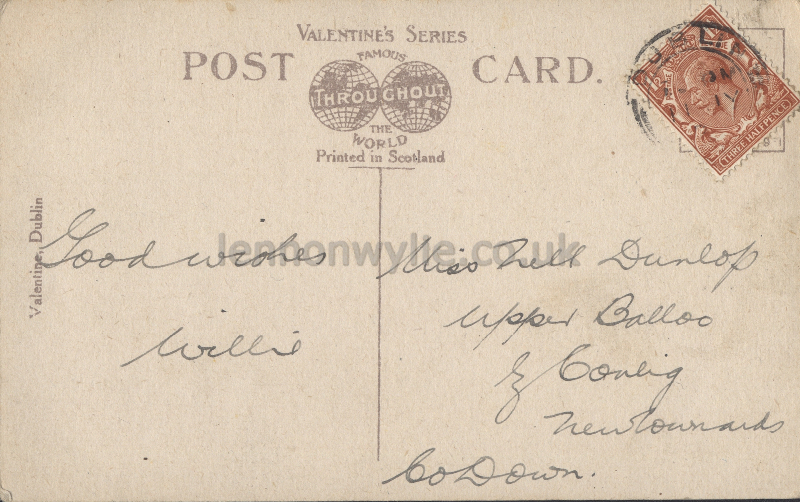 VALENTINE'S SERIES
POST CARD.
FAMOUS
THROUGHOUT
THE
WORLD
Printed in Scotland
THREE HALFPENCE
Valentine, Dublin
lennonwylie.co.uk
Good wishes
Willie
Miss Nell Dunlop
Upper Balloo
Conlig
Newtownards
Co Down.